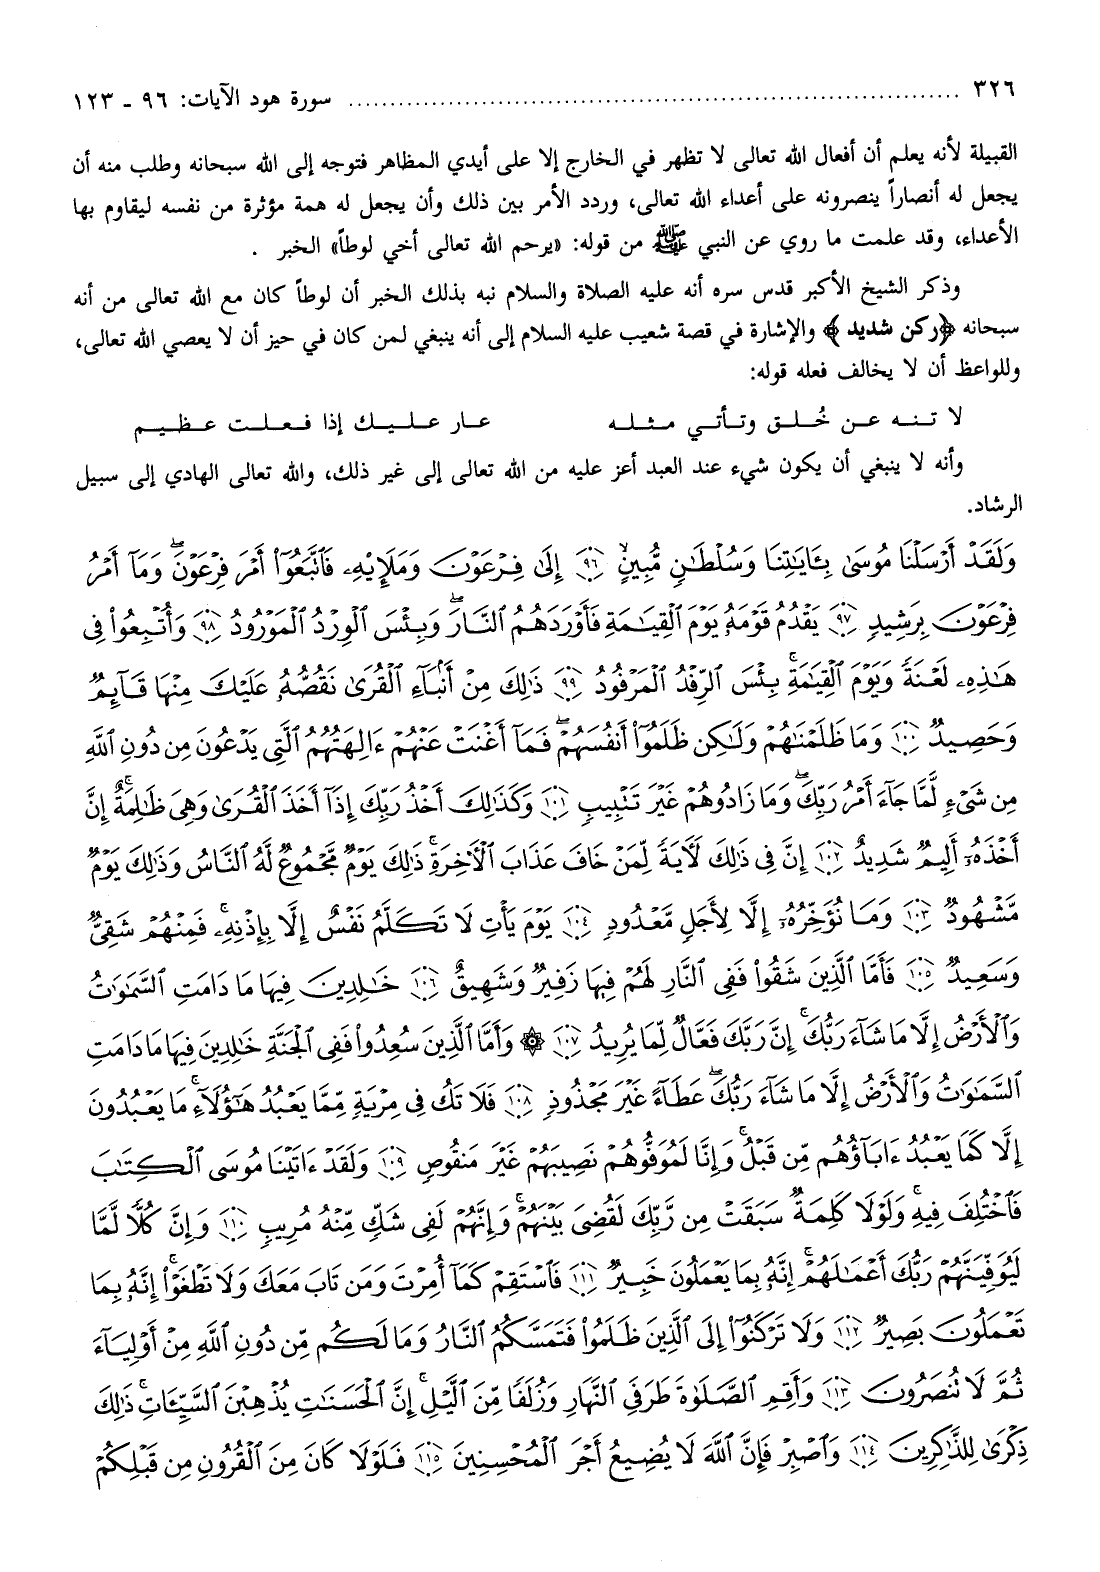 ٣٢٦ ........................................ سورة هود الآيات: ٩٦ - ١٢٣
القبيلة لأنه يعلم أن أفعال الله تعالى لا تظهر في الخارج إلا على أيدي المظاهر فتوجه إلى الله سبحانه وطلب منه أن
يجعل له أنصاراً ينصرونه على أعداء الله تعالى، وردد الأمر بين ذلك وأن يجعل له همة مؤثرة من نفسه ليقاوم بها
الأعداء، وقد علمت ما روي عن النبي ﷺ من قوله: «يرحم الله تعالى أخي لوطاً» الخبر .
وذكر الشيخ الأكبر قدس سره أنه عليه الصلاة والسلام نبه بذلك الخبر أن لوطاً كان مع الله تعالى من أنه
سبحانه ﴿ركن شديد﴾ والإشارة في قصة شعيب عليه السلام إلى أنه ينبغي لمن كان في حيز أن لا يعصي الله تعالى،
وللواعظ أن لا يخالف فعله قوله:
لا تنه عن خُلق وتأتي مثله عار عليك إذا فعلت عظيم
وأنه لا ينبغي أن يكون شيء عند العبد أعز عليه من الله تعالى إلى غير ذلك، والله تعالى الهادي إلى سبيل
الرشاد.
وَلَقَدْ أَرْسَلْنَا مُوسَىٰ بِـَٔايَٰتِنَا وَسُلْطَٰنٍ مُّبِينٍ ۙ ﴿٩٦﴾ إِلَىٰ فِرْعَوْنَ وَمَلَإِي۟هِۦ فَٱتَّبَعُوٓا۟ أَمْرَ فِرْعَوْنَ ۖ وَمَآ أَمْرُ
فِرْعَوْنَ بِرَشِيدٍ ﴿٩٧﴾ يَقْدُمُ قَوْمَهُۥ يَوْمَ ٱلْقِيَٰمَةِ فَأَوْرَدَهُمُ ٱلنَّارَ ۖ وَبِئْسَ ٱلْوِرْدُ ٱلْمَوْرُودُ ﴿٩٨﴾ وَأُتْبِعُوا۟ فِى
هَٰذِهِۦ لَعْنَةً وَيَوْمَ ٱلْقِيَٰمَةِ ۚ بِئْسَ ٱلرِّفْدُ ٱلْمَرْفُودُ ﴿٩٩﴾ ذَٰلِكَ مِنْ أَنۢبَآءِ ٱلْقُرَىٰ نَقُصُّهُۥ عَلَيْكَ ۖ مِنْهَا قَآئِمٌ
وَحَصِيدٌ ﴿١٠٠﴾ وَمَا ظَلَمْنَٰهُمْ وَلَٰكِن ظَلَمُوٓا۟ أَنفُسَهُمْ ۖ فَمَآ أَغْنَتْ عَنْهُمْ ءَالِهَتُهُمُ ٱلَّتِى يَدْعُونَ مِن دُونِ ٱللَّهِ
مِن شَىْءٍ لَّمَّا جَآءَ أَمْرُ رَبِّكَ ۖ وَمَا زَادُوهُمْ غَيْرَ تَتْبِيبٍ ﴿١٠١﴾ وَكَذَٰلِكَ أَخْذُ رَبِّكَ إِذَآ أَخَذَ ٱلْقُرَىٰ وَهِىَ ظَٰلِمَةٌ ۚ إِنَّ
أَخْذَهُۥٓ أَلِيمٌ شَدِيدٌ ﴿١٠٢﴾ إِنَّ فِى ذَٰلِكَ لَـَٔايَةً لِّمَنْ خَافَ عَذَابَ ٱلْـَٔاخِرَةِ ۚ ذَٰلِكَ يَوْمٌ مَّجْمُوعٌ لَّهُ ٱلنَّاسُ وَذَٰلِكَ يَوْمٌ
مَّشْهُودٌ ﴿١٠٣﴾ وَمَا نُؤَخِّرُهُۥٓ إِلَّا لِأَجَلٍ مَّعْدُودٍ ﴿١٠٤﴾ يَوْمَ يَأْتِ لَا تَكَلَّمُ نَفْسٌ إِلَّا بِإِذْنِهِۦ ۚ فَمِنْهُمْ شَقِىٌّ
وَسَعِيدٌ ﴿١٠٥﴾ فَأَمَّا ٱلَّذِينَ شَقُوا۟ فَفِى ٱلنَّارِ لَهُمْ فِيهَا زَفِيرٌ وَشَهِيقٌ ﴿١٠٦﴾ خَٰلِدِينَ فِيهَا مَا دَامَتِ ٱلسَّمَٰوَٰتُ
وَٱلْأَرْضُ إِلَّا مَا شَآءَ رَبُّكَ ۚ إِنَّ رَبَّكَ فَعَّالٌ لِّمَا يُرِيدُ ﴿١٠٧﴾ ۞ وَأَمَّا ٱلَّذِينَ سُعِدُوا۟ فَفِى ٱلْجَنَّةِ خَٰلِدِينَ فِيهَا مَا دَامَتِ
ٱلسَّمَٰوَٰتُ وَٱلْأَرْضُ إِلَّا مَا شَآءَ رَبُّكَ ۖ عَطَآءً غَيْرَ مَجْذُوذٍ ﴿١٠٨﴾ فَلَا تَكُ فِى مِرْيَةٍ مِّمَّا يَعْبُدُ هَٰٓؤُلَآءِ ۚ مَا يَعْبُدُونَ
إِلَّا كَمَا يَعْبُدُ ءَابَآؤُهُم مِّن قَبْلُ ۚ وَإِنَّا لَمُوَفُّوهُمْ نَصِيبَهُمْ غَيْرَ مَنقُوصٍ ﴿١٠٩﴾ وَلَقَدْ ءَاتَيْنَا مُوسَى ٱلْكِتَٰبَ
فَٱخْتُلِفَ فِيهِ ۚ وَلَوْلَا كَلِمَةٌ سَبَقَتْ مِن رَّبِّكَ لَقُضِىَ بَيْنَهُمْ ۚ وَإِنَّهُمْ لَفِى شَكٍّ مِّنْهُ مُرِيبٍ ﴿١١٠﴾ وَإِنَّ كُلًّا لَّمَّا
لَيُوَفِّيَنَّهُمْ رَبُّكَ أَعْمَٰلَهُمْ ۚ إِنَّهُۥ بِمَا يَعْمَلُونَ خَبِيرٌ ﴿١١١﴾ فَٱسْتَقِمْ كَمَآ أُمِرْتَ وَمَن تَابَ مَعَكَ وَلَا تَطْغَوْا۟ ۚ إِنَّهُۥ بِمَا
تَعْمَلُونَ بَصِيرٌ ﴿١١٢﴾ وَلَا تَرْكَنُوٓا۟ إِلَى ٱلَّذِينَ ظَلَمُوا۟ فَتَمَسَّكُمُ ٱلنَّارُ وَمَا لَكُم مِّن دُونِ ٱللَّهِ مِنْ أَوْلِيَآءَ
ثُمَّ لَا تُنصَرُونَ ﴿١١٣﴾ وَأَقِمِ ٱلصَّلَوٰةَ طَرَفَىِ ٱلنَّهَارِ وَزُلَفًا مِّنَ ٱلَّيْلِ ۚ إِنَّ ٱلْحَسَنَٰتِ يُذْهِبْنَ ٱلسَّيِّـَٔاتِ ۚ ذَٰلِكَ
ذِكْرَىٰ لِلذَّٰكِرِينَ ﴿١١٤﴾ وَٱصْبِرْ فَإِنَّ ٱللَّهَ لَا يُضِيعُ أَجْرَ ٱلْمُحْسِنِينَ ﴿١١٥﴾ فَلَوْلَا كَانَ مِنَ ٱلْقُرُونِ مِن قَبْلِكُمْ